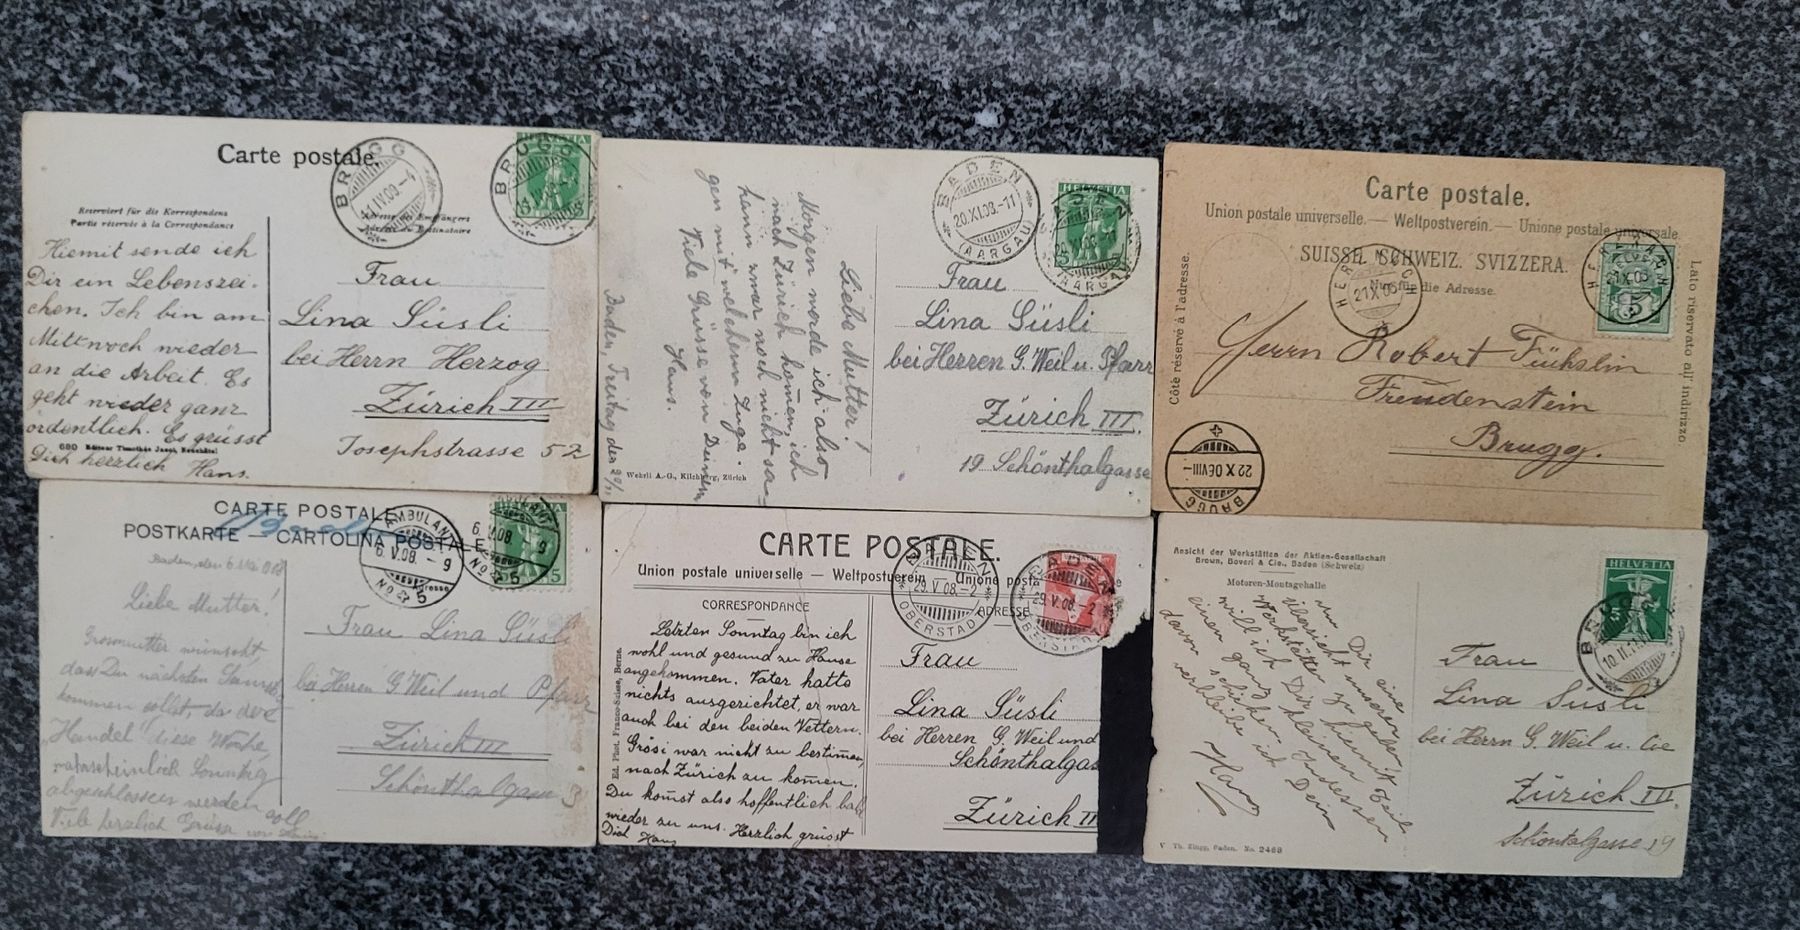 Carte postale.
BRUGG
BRUGG
HELVETIA
Reserviert für die Korrespondenz
Partie réservée à la Correspondance
Hiemit sende ich
Dir ein Lebenszei-
chen. Ich bin am
Mittwoch wieder
an die Arbeit. Es
geht wieder ganz
ordentlich. Es grüsst
Dich herzlich Hans.
680 Editeur Timothée Jacot, Neuchâtel
Frau
Lina Süsli
bei Herrn Herzog
Zürich III
Josephstrasse 52
BADEN
20.XI.08.-11
(AARGAU)
HELVETIA
BADEN
(AARGAU)
Baden, Freitag den 20/11
Liebe Mutter!
Morgen werde ich also
nach Zürich kommen, ich
kann zwar noch nicht sa-
gen mit welchem Zuge.
Viele Grüsse von Deinem
Hans.
Wehrli A.-G., Kilchberg, Zürich
Frau
Lina Süsli
bei Herren G. Weil u. Pfarr
Zürich III.
19 Schönthalgasse
Carte postale.
Union postale universelle. — Weltpostverein. — Unione postale universale.
SUISSE. SCHWEIZ. SVIZZERA.
Nur für die Adresse.
Côté réservé à l'adresse.
Lato riservato all'indirizzo
21.X.06
Herrn Robert Füchslin
Freudenstein
Brugg.
22 X 06 VIII-
BRUGG
CARTE POSTALE
POSTKARTE — CARTOLINA POSTALE
AMBULANT
6.V.08.-9
No 5
6.V.08.-9
No 5
Baden, den 6. Mai 08
Liebe Mutter!
Grossmutter wünscht,
dass Du nächsten Samst.
kommen sollst, da der
"Handel" diese Woche,
wahrscheinlich Sonntag
abgeschlossen werden soll
Viele herzlich Grüsse von
Frau Lina Süsli
bei Herren G Weil und Pfarr
Zürich III
Schönthalgasse
CARTE POSTALE.
Union postale universelle — Weltpostverein — Unione posta
CORRESPONDANCE
ADRESSE
BADEN
29.V.08.-2
OBERSTADT
BADEN
29.V.08.-2
OBERSTADT
Letzten Sonntag bin ich
wohl und gesund zu Hause
angekommen. Vater hatte
nichts ausgerichtet, er war
auch bei den beiden Vettern.
Grösi war nicht zu bestimmen,
nach Zürich zu kommen.
Du kommst also hoffentlich bald
wieder zu uns. Herzlich grüsst
Dich Hans
Ed. Phot. Franco-Suisse, Berne.
Frau
Lina Süsli
bei Herren G. Weil und
Schönthalgas
Zürich II
Ansicht der Werkstätten der Aktien-Gesellschaft
Brown, Boveri & Cie., Baden (Schweiz)
Motoren-Montagehalle
HELVETIA
Um Dir eine
Übersicht unserer
Werkstätten zu geben,
will ich Dir hiemit
einen ganz kleinen Teil
davon schicken. Indessen
verbleibe ich Dein
Hans
V Th. Zingg, Baden. No. 2468
Frau
Lina Süsli
bei Herrn G. Weil u. Cie
Zürich III.
Schöntalgasse 19